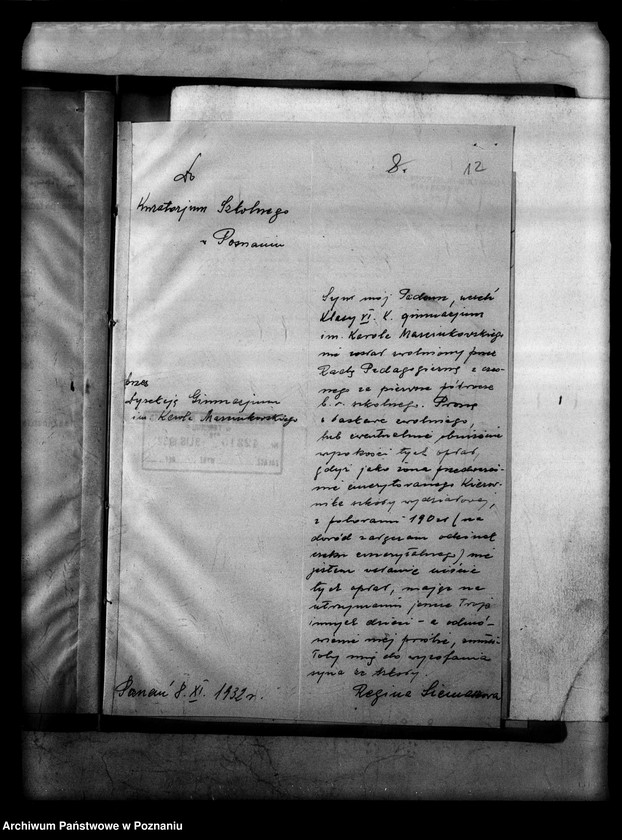 8. 12
Do
Kuratorjum Szkolnego
w Poznaniu
przez
Dyrekcję Gimnazjum
im. Karola Marcinkowskiego
Syn mój Padem, uczeń
klasy VI. K. gimnazjum
im. Karola Marcinkowskiego
nie został zwolniony przez
Radę Pedagogiczną z czes-
nego za pierwsze półrocze
b. r. szkolnego. Proszę
o łaskawe zwolnienie,
lub ewentualne obniżenie
wysokości tych opłat,
gdyż jako żona przedwcześ-
nie emerytowanego kierow-
nika szkoły wydziałowej,
z poborami 190 zł (na
dowód załączam odcinek
czeku emerytalnego) nie
jestem w stanie uiścić
tych opłat, mając na
utrzymaniu jeszcze troje
innych dzieci - a odmó-
wienie mej prośbie, zmusi-
łoby mię do wycofania
syna ze szkoły.
Poznań 8. XI. 1932 r.
Regina
Archiwum Państwowe w Poznaniu